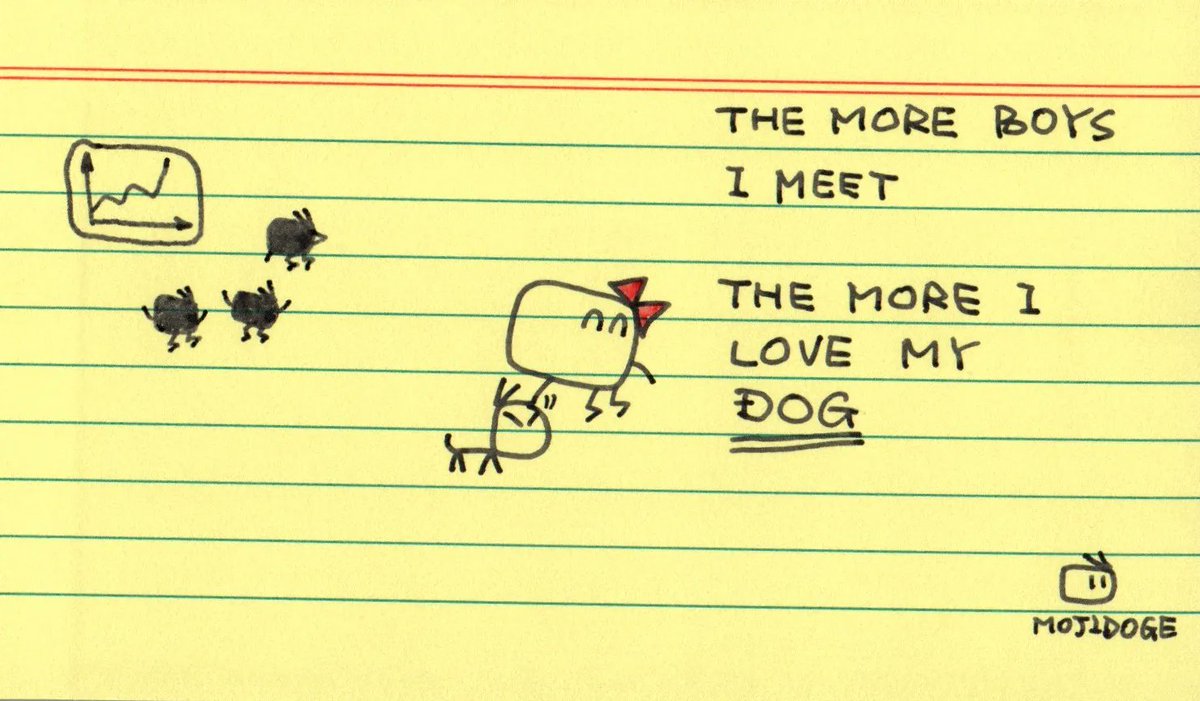 THE MORE BOYS
I MEET
THE MORE I
LOVE MY
DOG
MOJIDOGE